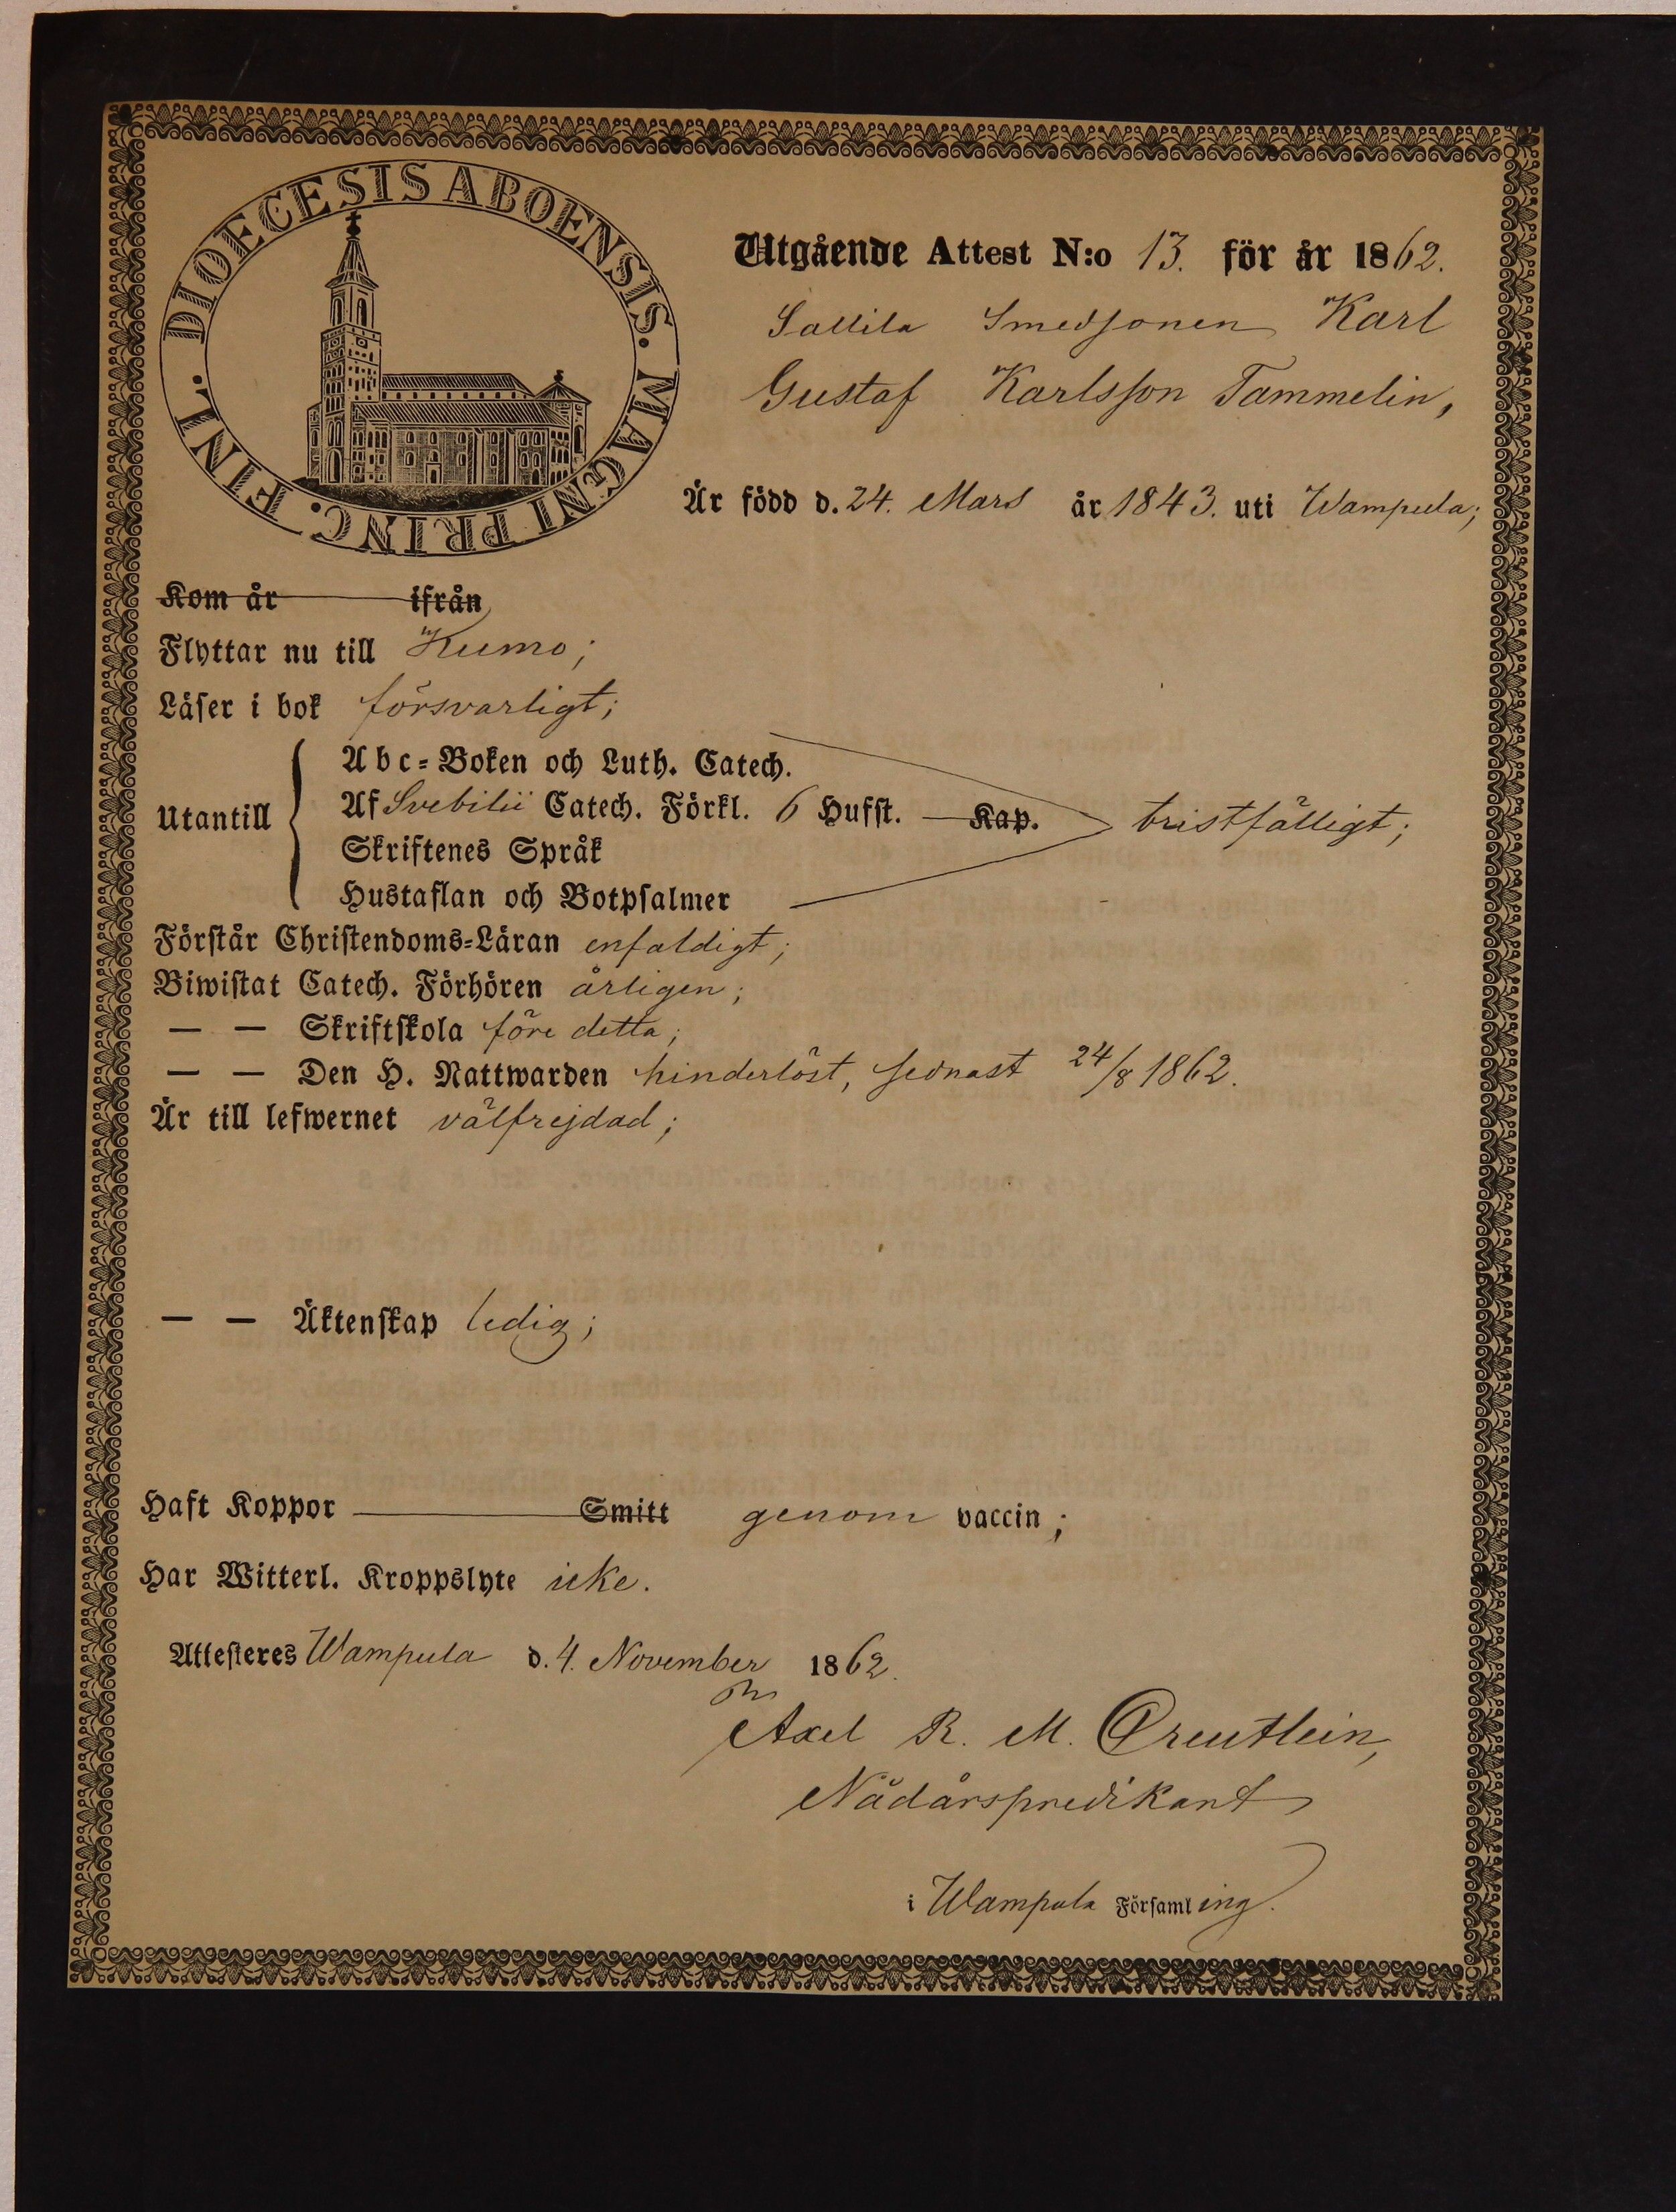 DIOECESIS ABOENSIS. MAGNI PRINC. FINL.
Utgående Attest N:o 13. för år 1862.
Sallila Smedsonen Karl
Gustaf Karlsson Tammelin,
Är född d. 24. Mars år 1843. uti Wampula;
Kom år ifrån
Flyttar nu till Kumo;
Läser i bok försvarligt;
Utantill
Abc-Boken och Luth. Catech.
Af Svebilii Catech. Förkl. 6 Hufst. Kap. bristfälligt;
Skriftenes Språk
Hustaflan och Botpsalmer
Förstår Christendoms-Läran enfaldigt;
Biwistat Catech. Förhören årligen;
— — Skriftskola före detta;
— — Den H. Nattwarden hinderlöst, sednast 24/8 1862.
Är till lefwernet välfrejdad;
— — Äktenskap ledig;
Haft Koppor Smitt genom vaccin;
Har Witterl. Kroppslyte icke.
Attesteres Wampula d. 4. November 1862.
Axel R. M. Creutlein,
Nådårspredikant
i Wampula Församling.